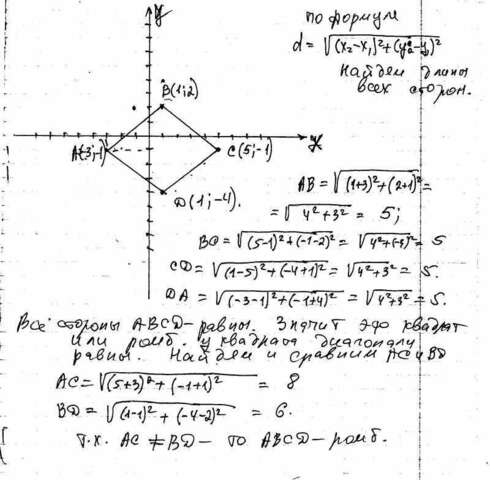 у
по формуле
d = √(x₂-x₁)²+(y₂-y₁)²
Найдем длины
всех сторон.
B(1;2)
x
A(-3;-1)
C(5;-1)
D(1;-4).
AB = √(1+3)²+(2+1)² =
= √4²+3² = 5;
BC = √(5-1)²+(-1-2)² = √4²+(-3)² = 5
CD = √(1-5)²+(-4+1)² = √4²+3² = 5.
DA = √(-3-1)²+(-1+4)² = √4²+3² = 5.
Все стороны ABCD - равны. Значит это квадрат
или ромб. У квадрата диагонали
равны. Найдем и сравним AC и BD
AC = √(5+3)² + (-1+1)² = 8
BD = √(1-1)² + (-4-2)² = 6.
Т.к. AC ≠ BD - то ABCD - ромб.